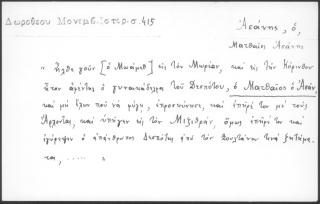 Δωροθέου Μονεμβ. Ἱστορ. σ. 415
Ἀσάνης, ὁ,
Ματθαῖος Ἀσάνης
" Ἦλθε γοῦν [ὁ Μωάμεθ] εἰς τὸν Μωρίαν, καὶ εἰς τὴν Κόρινθον
ἦτον ὁ γυναικάδελφος τοῦ Δεσπότου, ὁ Ματθαῖος ὁ Ἀσάν,
καὶ μὴ ἔχων ποῦ νὰ φύγῃ, ἐπροσκύνησε, καὶ ἐπῆρέ τον μὲ τοὺς
Ἄρχοντας, καὶ ὑπῆγεν εἰς τὸν Μιζιθρᾶν, ὅμως ἐπῆρέ τον καὶ
ὁ Δεσπότης ἀπὸ τὸν Σουλτάνον τινὰ ζητήμα-
τα, ..... "